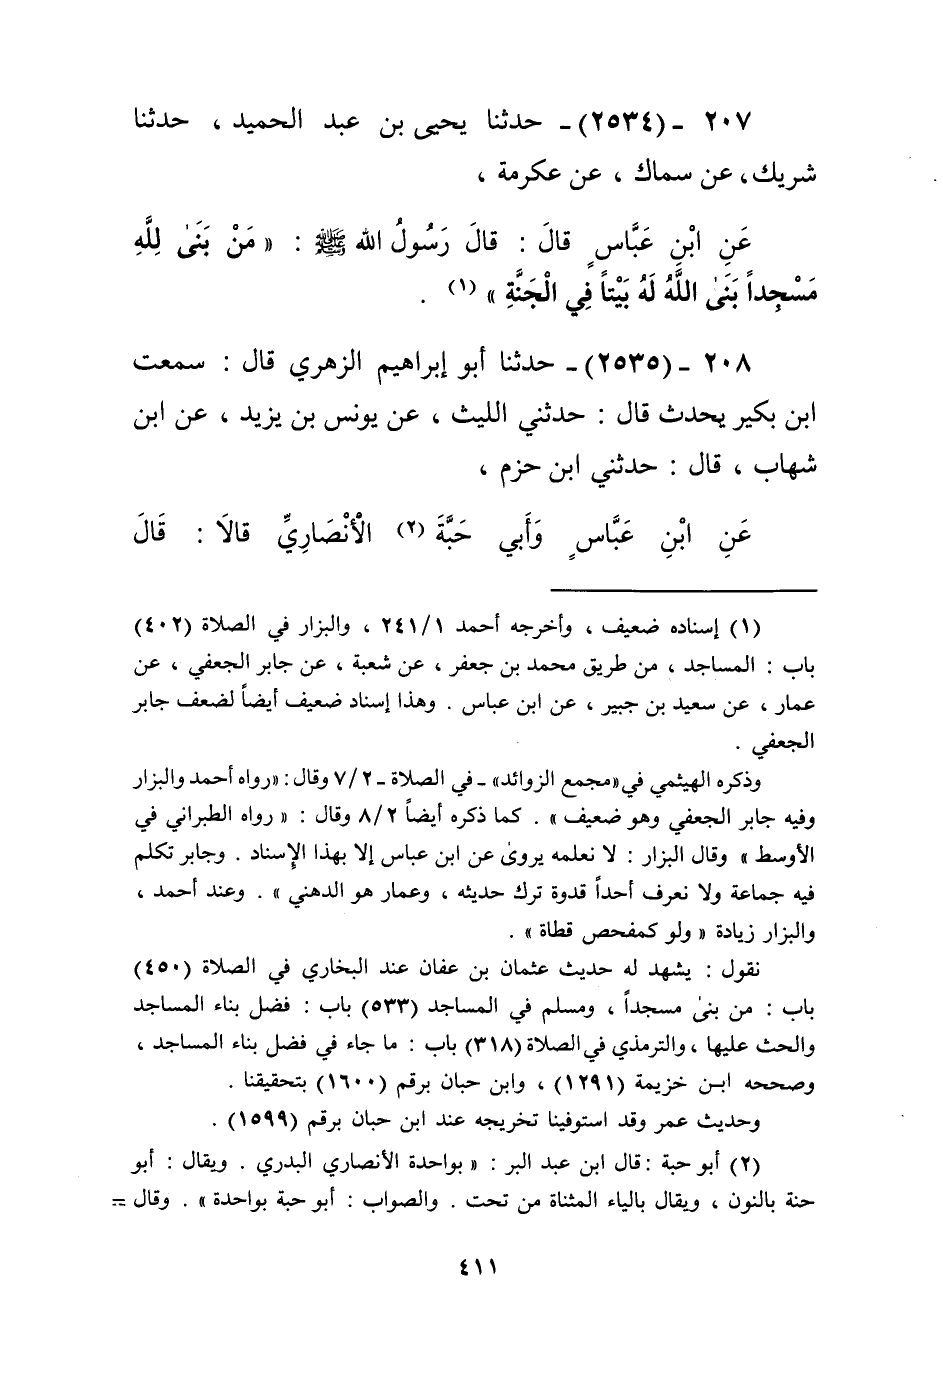 ٢٠٧ ـ (٢٥٣٤) ـ حدثنا يحيى بن عبد الحميد ، حدثنا
شريك، عن سماك ، عن عكرمة ،
عَنِ ابْنِ عَبَّاسٍ قالَ : قالَ رَسُولُ الله ﷺ : « مَنْ بَنَىٰ لِلَّهِ
مَسْجِداً بَنَىٰ اللَّهُ لَهُ بَيْتاً فِي الْجَنَّةِ » (١) .
٢٠٨ ـ (٢٥٣٥) ـ حدثنا أبو إبراهيم الزهري قال : سمعت
ابن بكير يحدث قال : حدثني الليث ، عن يونس بن يزيد ، عن ابن
شهاب ، قال : حدثني ابن حزم ،
عَنِ ابْنِ عَبَّاسٍ وَأَبي حَبَّةَ (٢) الْأَنْصَارِيِّ قالَا : قَالَ
(١) إسناده ضعيف ، وأخرجه أحمد ٢٤١/١ ، والبزار في الصلاة (٤٠٢)
باب : المساجد ، من طريق محمد بن جعفر ، عن شعبة ، عن جابر الجعفي ، عن
عمار ، عن سعيد بن جبير ، عن ابن عباس . وهذا إسناد ضعيف أيضاً لضعف جابر
الجعفي .
وذكره الهيثمي في «مجمع الزوائد» ـ في الصلاة ـ ٧/٢ وقال : «رواه أحمد والبزار
وفيه جابر الجعفي وهو ضعيف » . كما ذكره أيضاً ٨/٢ وقال : « رواه الطبراني في
الأوسط » وقال البزار : لا نعلمه يروىٰ عن ابن عباس إلا بهذا الإسناد . وجابر تكلم
فيه جماعة ولا نعرف أحداً قدوة ترك حديثه ، وعمار هو الدهني » . وعند أحمد ،
والبزار زيادة « ولو كمفحص قطاة » .
نقول : يشهد له حديث عثمان بن عفان عند البخاري في الصلاة (٤٥٠)
باب : من بنىٰ مسجداً ، ومسلم في المساجد (٥٣٣) باب : فضل بناء المساجد
والحث عليها ، والترمذي في الصلاة (٣١٨) باب : ما جاء في فضل بناء المساجد ،
وصححه ابن خزيمة (١٢٩١) ، وابن حبان برقم (١٦٠٠) بتحقيقنا .
وحديث عمر وقد استوفينا تخريجه عند ابن حبان برقم (١٥٩٩) .
(٢) أبو حبة : قال ابن عبد البر : « بواحدة الأنصاري البدري . ويقال : أبو
حنة بالنون ، ويقال بالياء المثناة من تحت . والصواب : أبو حبة بواحدة » . وقال =
٤١١